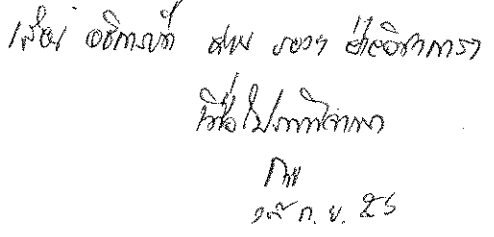 เรียน อธิการบดี ผ่าน รองฯ ฝ่ายวิชาการ
เพื่อโปรดพิจารณา
ก.ย.